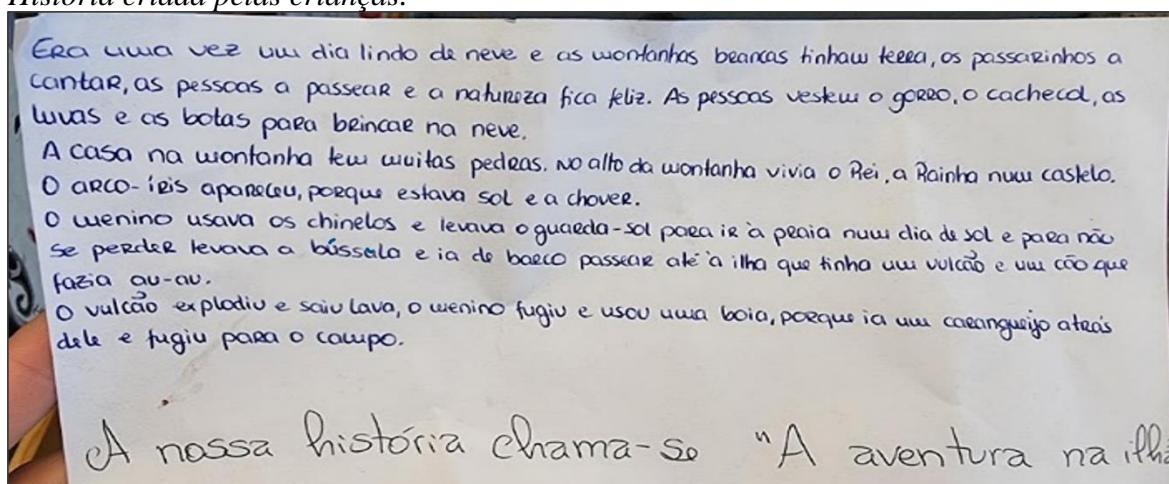 História criada pelas crianças:
Era uma vez um dia lindo de neve e as montanhas brancas tinham terra, os passarinhos a
cantar, as pessoas a passear e a natureza fica feliz. As pessoas vestem o gorro, o cachecol, as
luvas e as botas para brincar na neve.
A casa na montanha tem muitas pedras. No alto da montanha vivia o Rei, a Rainha num castelo.
O arco-íris apareceu, porque estava sol e a chover.
O menino usava os chinelos e levava o guarda-sol para ir à praia num dia de sol e para não
se perder levava a bússola e ia de barco passear até à ilha que tinha um vulcão e um cão que
fazia au-au.
O vulcão explodiu e saiu lava, o menino fugiu e usou uma boia, porque ia um caranguejo atrás
dele e fugiu para o campo.
A nossa história chama-se "A aventura na ilha